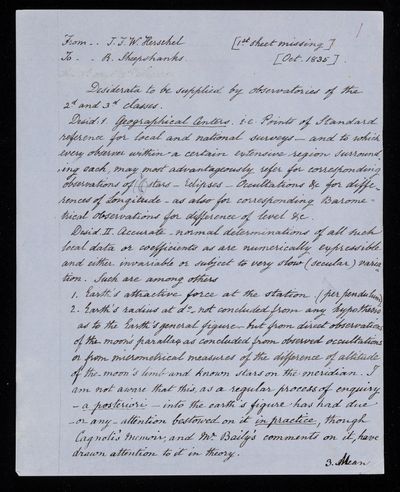 1
From - . J. F. W. Herschel [1st sheet missing]
To - . R. Sheepshanks. [Oct. 1835].
Desiderata to be supplied by observatories of the
2d and 3d classes.
Desid. I. Geographical Centers. i.e. Points of Standard
reference for local and national surveys — and to which
every observer within a certain extensive region surround-
ing each, may most advantageously refer for corresponding
observations of ☾ stars — eclipses — Occultations &c for diffe-
rences of Longitude — as also for corresponding Barome-
trical observations for difference of level &c.
Desid. II. Accurate - normal determinations of all such
local data or coefficients as are numerically expressible
and either invariable or subject to very slow (secular) varia-
tion. Such are among others
1. Earth's attractive force at the station (per pendulum).
2. Earth's radius at do. not concluded from any hypothesis
as to the Earth's general figure — but from direct observations
of the moon's parallax as concluded from observed occultations
or from micrometrical measures of the difference of altitude
of the moon's limb and known stars on the meridian. I
am not aware that this, as a regular process of enquiry
— a posteriori — into the earth's figure has had due
— or any — attention bestowed on it in practice, though
Cagnoli's Memoir, and Mr Baily's comments on it, have
drawn attention to it in theory.
3. Mean